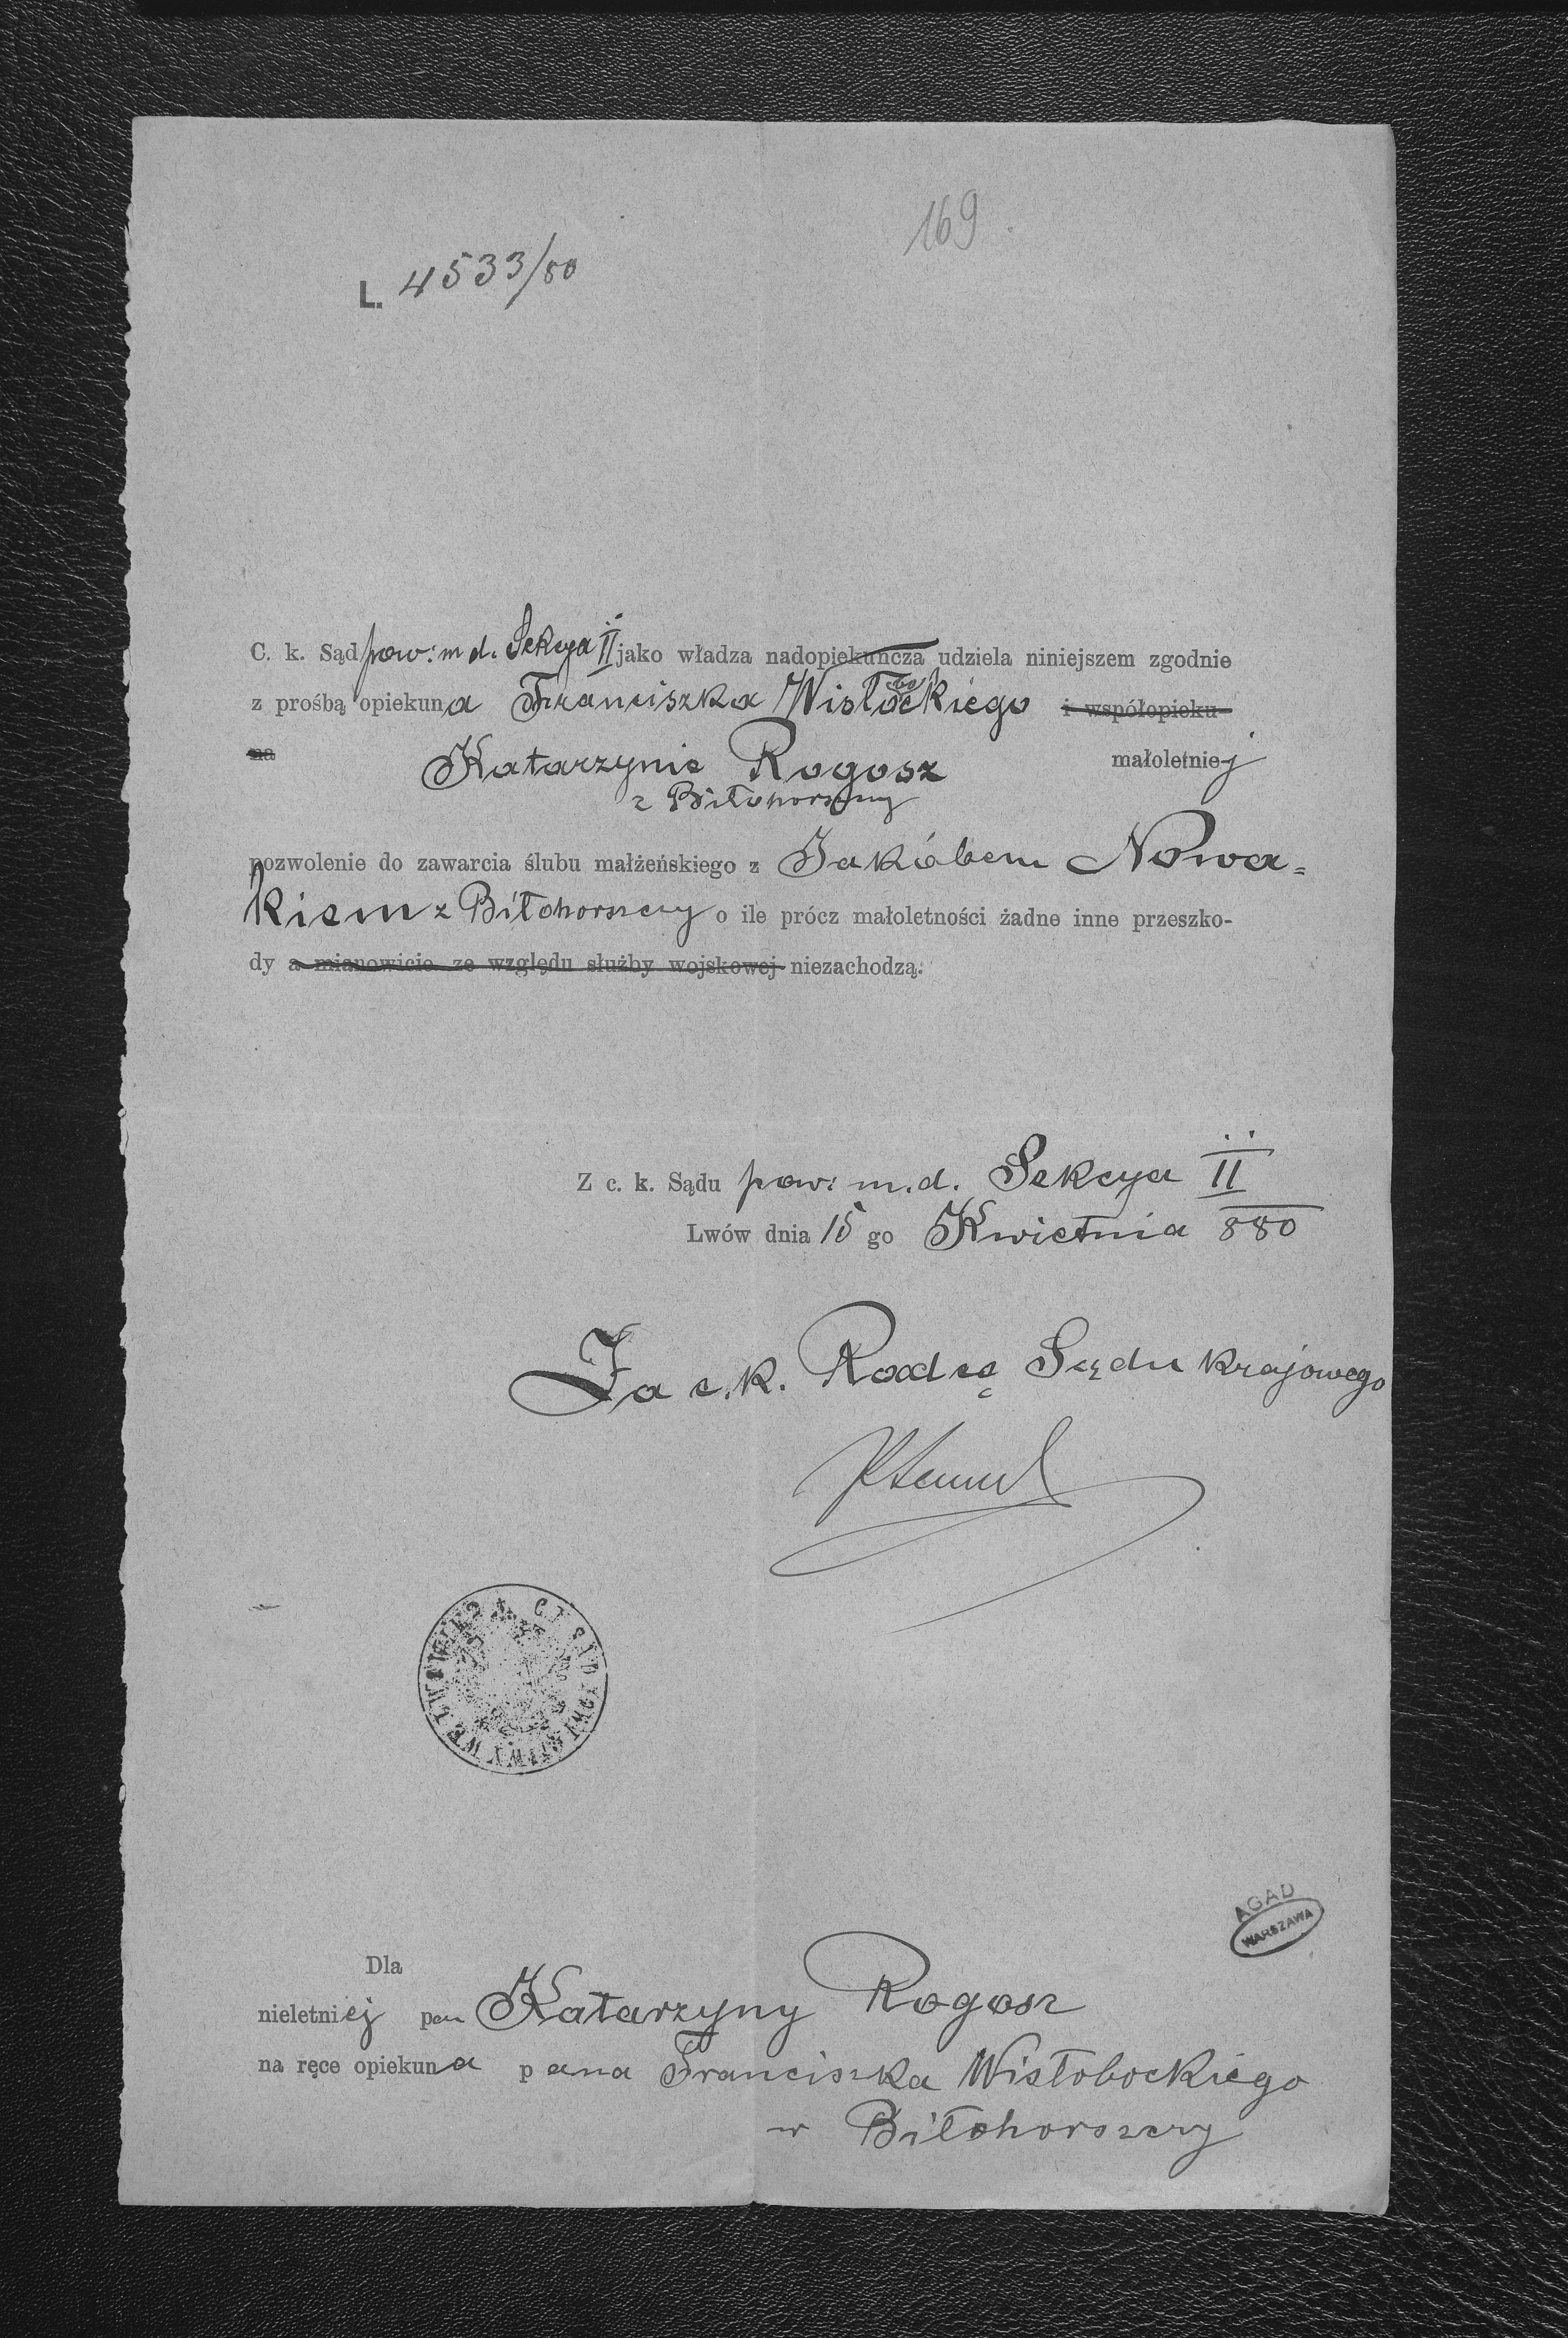 169.
L. 4533/80
C. k. Sąd pow: m d. Sekcya II jako władza nadopiekuńcza udziela niniejszem zgodnie
z prośbą opiekuna Franciszka Wisłobockiego i współopieku-
na Katarzynie Rogosz małoletniej
z Biłohorszczy
pozwolenie do zawarcia ślubu małżeńskiego z Jakóbem Nowa=
kiem z Biłohorszczy o ile prócz małoletności żadne inne przeszko-
dy a mianowicie ze względu służby wojskowej niezachodzą.
Z c. k. Sądu pow: m. d. Sekcya II
Lwów dnia 15 go Kwietnia 880
Za c. k. Radcę Sądu krajowego
C. K. SĄD POWIATOWY WE LWOWIE
AGAD
WARSZAWA
Dla
nieletniej pan Katarzyny Rogosz
na ręce opiekuna pana Franciszka Wisłobockiego
w Biłohorszczy